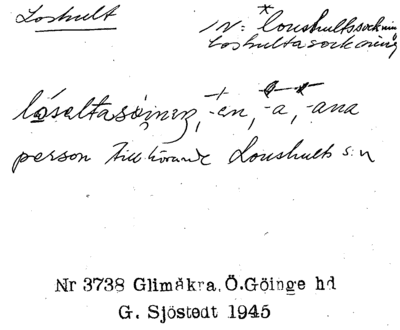 Loshult
IV: *Lonshultssockning
Loshultasockning
lósaltasóining, -en, -a, -ana
person tillhörande Lonshults s:n
Nr 3738 Glimåkra, Ö.Göinge hd
G. Sjöstedt 1945